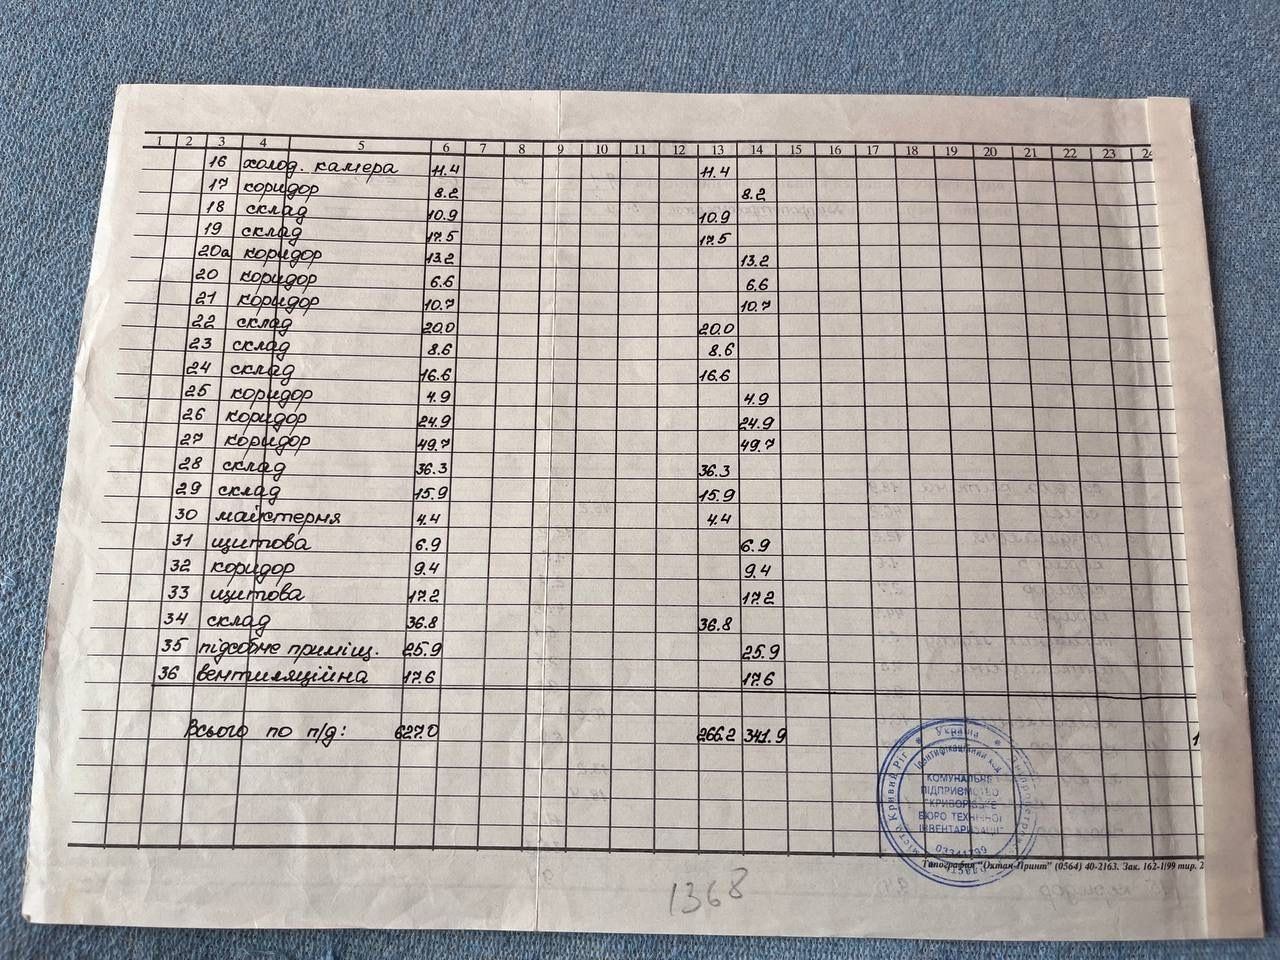 1 2 3 4 5 6 7 8 9 10 11 12 13 14 15 16 17 18 19 20 21 22 23 24
16 холод. камера 11.4 11.4
17 коридор 8.2 8.2
18 склад 10.9 10.9
19 склад 17.5 17.5
20а коридор 13.2 13.2
20 коридор 6.6 6.6
21 коридор 10.7 10.7
22 склад 20.0 20.0
23 склад 8.6 8.6
24 склад 16.6 16.6
25 коридор 4.9 4.9
26 коридор 24.9 24.9
27 коридор 49.7 49.7
28 склад 36.3 36.3
29 склад 15.9 15.9
30 майстерня 4.4 4.4
31 щитова 6.9 6.9
32 коридор 9.4 9.4
33 щитова 17.2 17.2
34 склад 36.8 36.8
35 підсобне приміщ. 25.9 25.9
36 вентиляційна 17.6 17.6
Всього по п/д: 627.0 266.2 341.9 1
Україна
міста Кривий Ріг
Ідентифікаційний код
КОМУНАЛЬНЕ
ПІДПРИЄМСТВО
"КРИВОРІЗЬКЕ
БЮРО ТЕХНІЧНОЇ
ІНВЕНТАРИЗАЦІЇ"
03341799
Типография "Октан-Принт" (0564) 40-2163. Зак. 162-1/99 тир. 2
1368